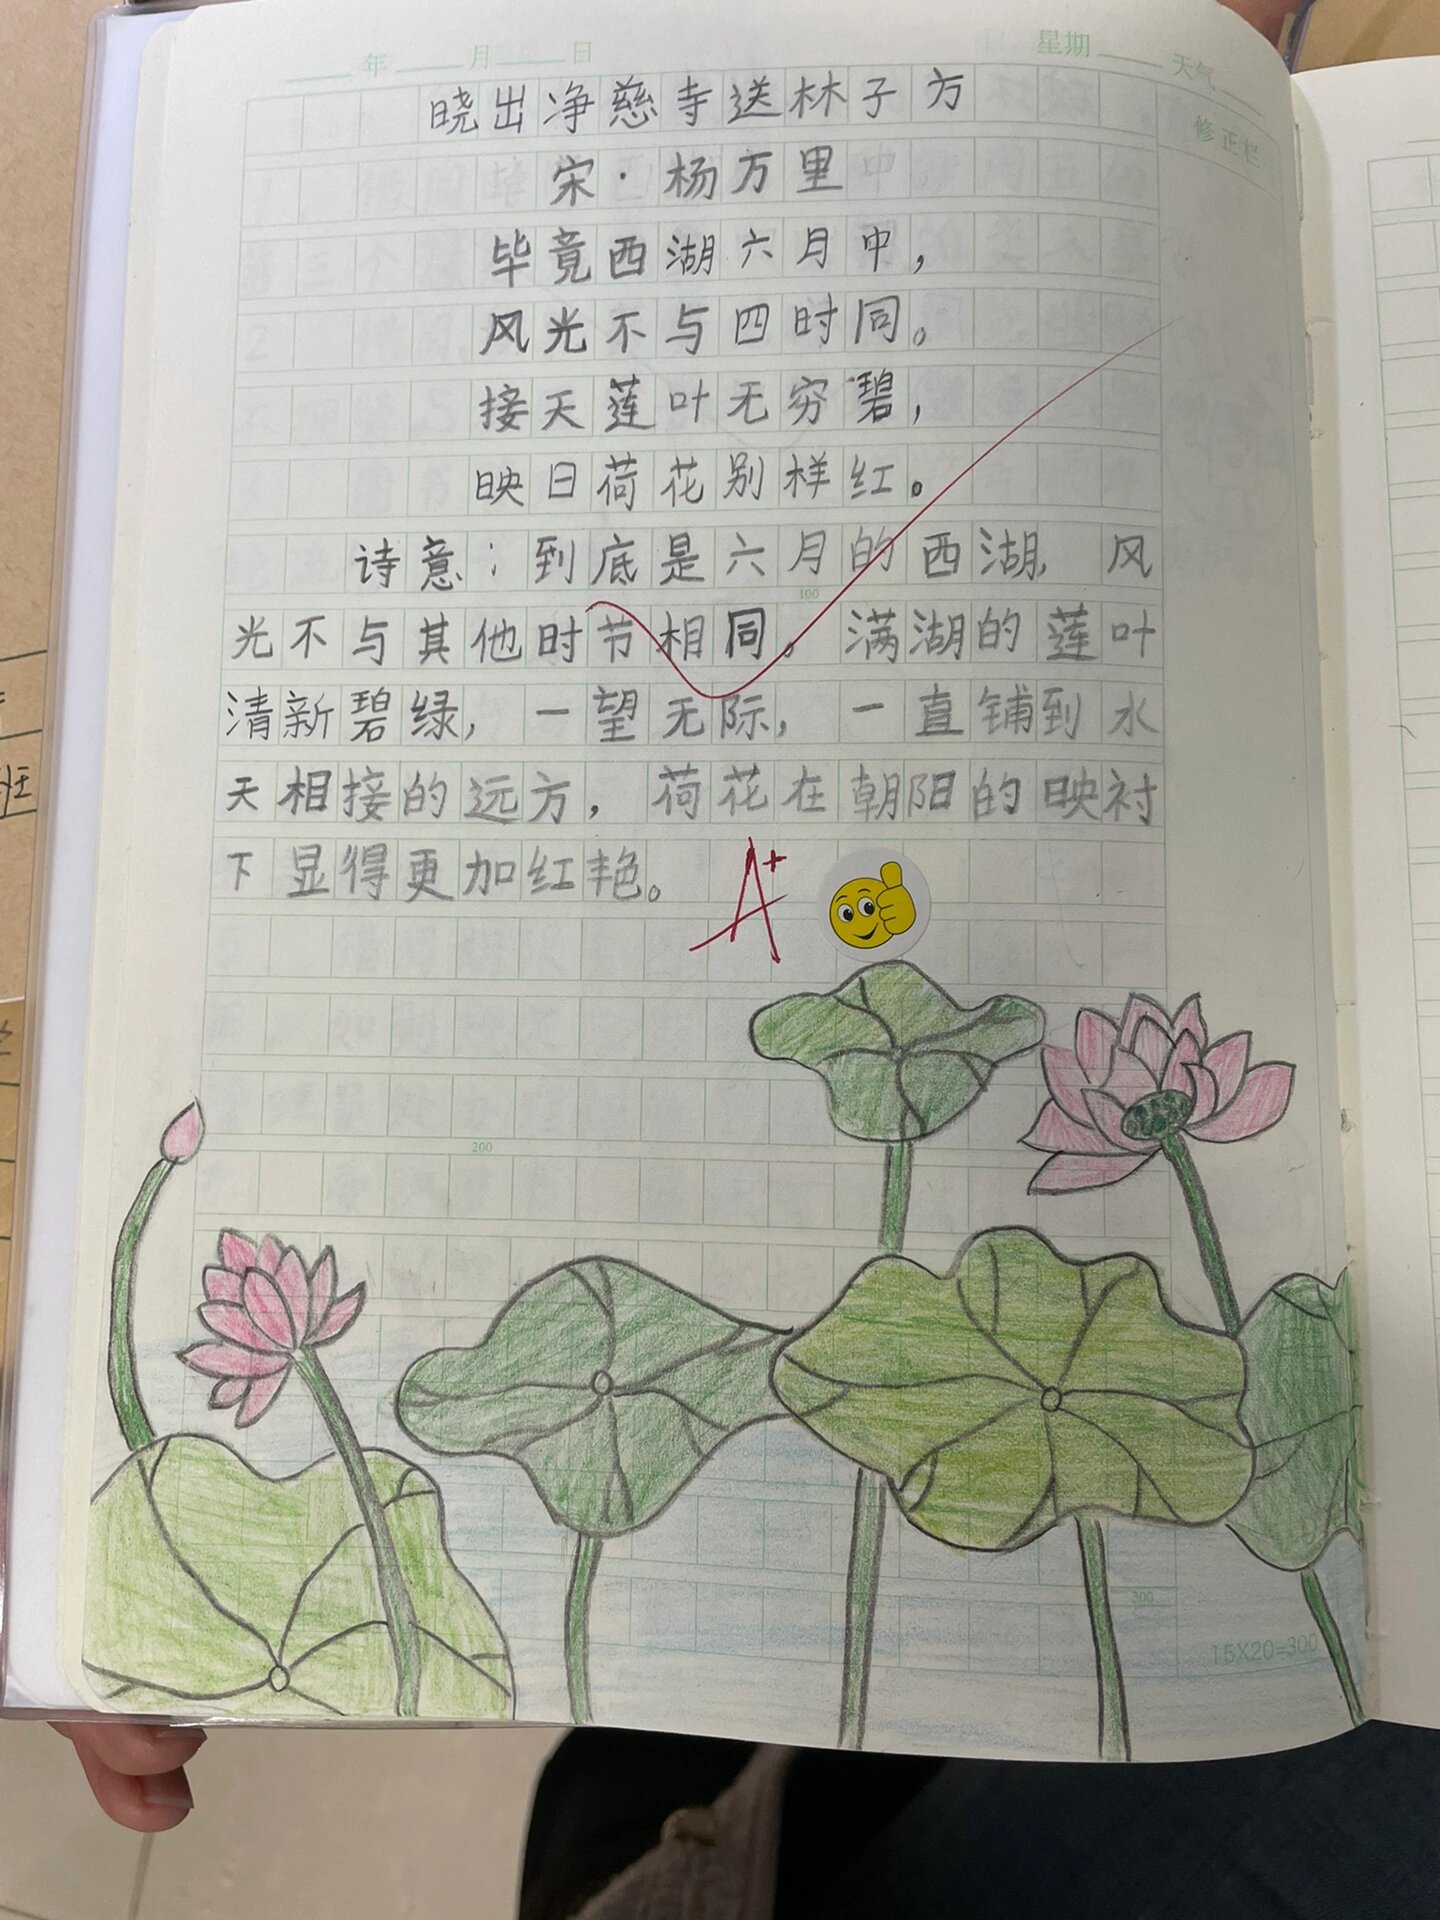 年 月 日 星期 天气
修正栏
晓出净慈寺送林子方
宋·杨万里
毕竟西湖六月中，
风光不与四时同。
接天莲叶无穷碧，
映日荷花别样红。
诗意：到底是六月的西湖，风
100
光不与其他时节相同。满湖的莲叶
清新碧绿，一望无际，一直铺到水
天相接的远方，荷花在朝阳的映衬
下显得更加红艳。
A+
200
300
15X20=300
班